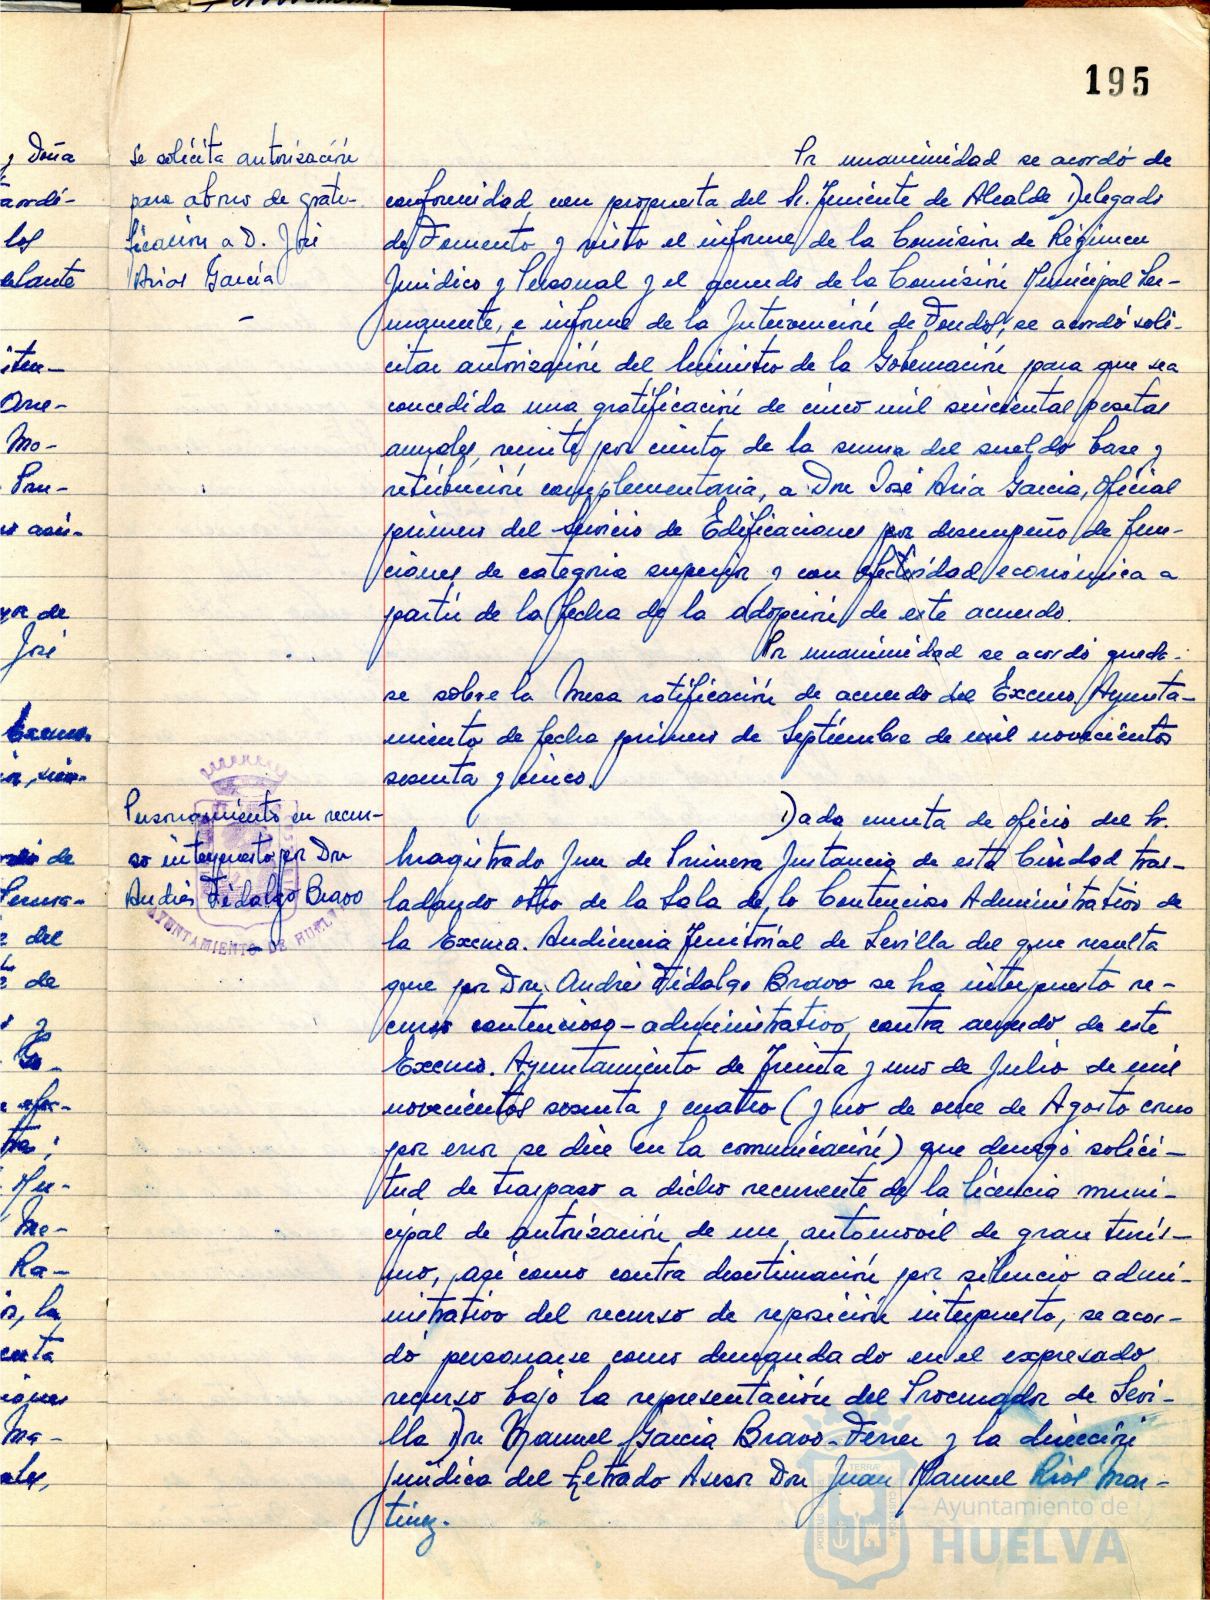 195
y Doña
aordi-
los
elante
iten-
One-
Mo-
Pru-
yor de
José
Excmo.
de
del
de
y
Me-
Ra-
la
Ma-
Se solicita autorización
para abono de grati-
ficación a D. José
Arias García
-
Por unanimidad se acordó de
conformidad con propuesta del Sr. Teniente de Alcalde Delegado
de Fomento y visto el informe de la Comisión de Régimen
Jurídico y Personal y el acuerdo de la Comisión Municipal Per-
manente, e informe de la Intervención de Fondos, se acordó soli-
citar autorización del Ministro de la Gobernación para que sea
concedida una gratificación de cinco mil seiscientas pesetas
anuales, veinte por ciento de la suma del sueldo base y
retribución complementaria, a Don José Aria García, Oficial
primero del Servicio de Edificaciones por desempeño de fun-
ciones de categoria superior y con efectividad económica a
partir de la fecha de la adopción de este acuerdo.
Por unanimidad se acordó queda-
se sobre la Mesa ratificación de acuerdo del Excmo. Ayunta-
miento de fecha primero de Septiembre de mil novecientos
sesenta y cinco.
Personamiento en recur-
so interpuesto por Don
Andrés Fidalgo Bravo
AYUNTAMIENTO DE HUELVA
Dada cuenta de oficio del Sr.
Magistrado Juez de Primera Instancia de esta Ciudad tras-
ladando otro de la Sala de lo Contencioso Administrativo de
la Excma. Audiencia Territorial de Sevilla del que resulta
que por Don Andrés Fidalgo Bravo se ha interpuesto re-
curso contencioso-administrativo, contra acuerdo de este
Excmo. Ayuntamiento de treinta y uno de Julio de mil
novecientos sesenta y cuatro (y no de once de Agosto como
por error se dice en la comunicación) que denegó solici-
tud de traspaso a dicho recurrente de la licencia muni-
cipal de autorización de un automovil de gran turis-
mo, asi como contra desestimación por silencio admi-
nistrativo del recurso de reposición interpuesto, se acor-
dó personarse como demandado en el expresado
recurso bajo la representación del Procurador de Sevi-
lla Don Manuel García Bravo-Ferrer y la dirección
jurídica del Letrado Asesor Don Juan Manuel Rios Mar-
tinez.
Ayuntamiento de
HUELVA